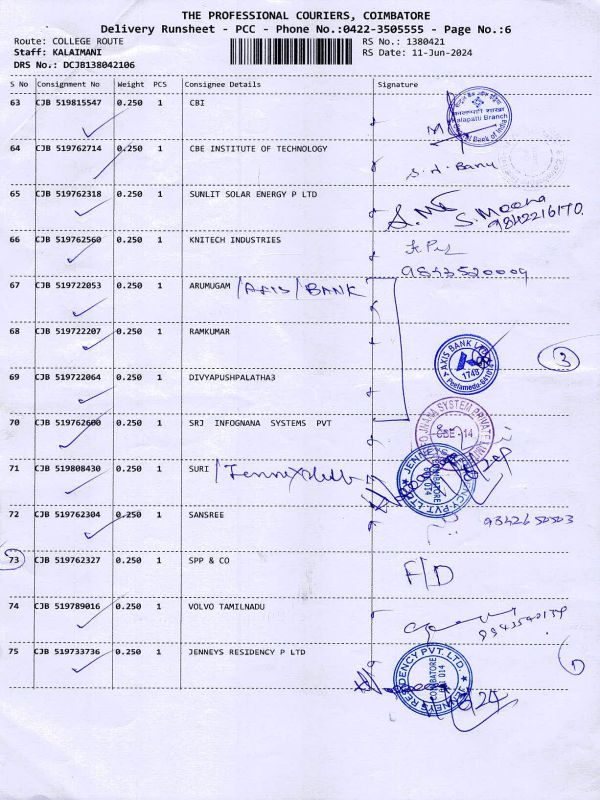 THE PROFESSIONAL COURIERS, COIMBATORE
Delivery Runsheet - PCC - Phone No.:0422-3505555 - Page No.:6
Route: COLLEGE ROUTE RS No.: 1380421
Staff: KALAIMANI RS Date: 11-Jun-2024
DRS No.: DCJB138042106
S No Consignment No Weight PCS Consignee Details Signature
63 CJB 519815547 0.250 1 CBI
64 CJB 519762714 0.250 1 CBE INSTITUTE OF TECHNOLOGY
65 CJB 519762318 0.250 1 SUNLIT SOLAR ENERGY P LTD S. Meena
9842216170
66 CJB 519762560 0.250 1 KNITECH INDUSTRIES
9843520009
67 CJB 519722053 0.250 1 ARUMUGAM /AXIS/BANK
68 CJB 519722207 0.250 1 RAMKUMAR
AXIS BANK LTD
3
69 CJB 519722064 0.250 1 DIVYAPUSHPALATHA3
70 CJB 519762600 0.250 1 SRJ INFOGNANA SYSTEMS PVT
CBE - 14
71 CJB 519808430 0.250 1 SURI
72 CJB 519762304 0.250 1 SANSREE
9342650503
73 CJB 519762327 0.250 1 SPP & CO F/D
74 CJB 519789016 0.250 1 VOLVO TAMILNADU
75 CJB 519733736 0.250 1 JENNEYS RESIDENCY P LTD
JENNEYS RESIDENCY PVT. LTD.
COIMBATORE
641 014